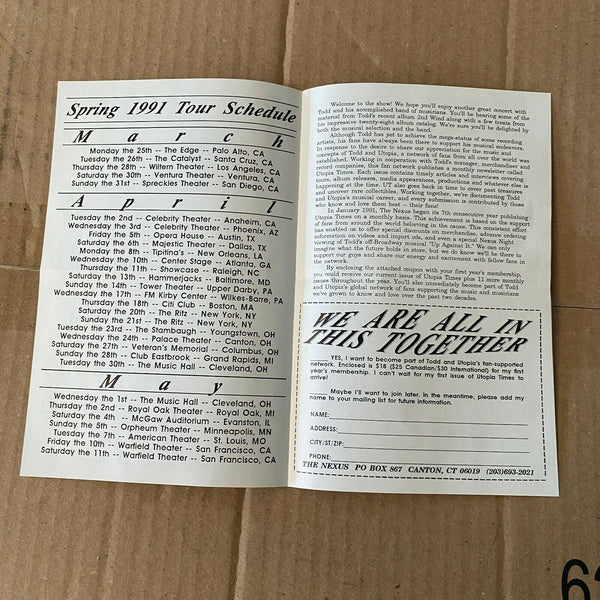 Spring 1991 Tour Schedule
March
Monday the 25th -- The Edge -- Palo Alto, CA
Tuesday the 26th -- The Catalyst -- Santa Cruz, CA
Thursday the 28th -- Willem Theater -- Los Angeles, CA
Saturday the 30th -- Ventura Theater -- Ventura, CA
Sunday the 31st -- Spreckles Theater -- San Diego, CA
April
Tuesday the 2nd -- Celebrity Theater -- Anaheim, CA
Wednesday the 3rd -- Celebrity Theater -- Phoenix, AZ
Friday the 5th -- Opera House -- Austin, TX
Saturday the 6th -- Majestic Theater -- Dallas, TX
Monday the 8th -- Tipitina's -- New Orleans, LA
Wednesday the 10th -- Center Stage -- Atlanta, GA
Thursday the 11th -- Showcase -- Raleigh, NC
Saturday the 13th -- Hammerjacks -- Baltimore, MD
Sunday the 14th -- Tower Theater -- Upper Darby, PA
Wednesday the 17th -- FM Kirby Center -- Wilkes-Barre, PA
Thursday the 18th -- Citi Club -- Boston, MA
Saturday the 20th -- The Ritz -- New York, NY
Sunday the 21st -- The Ritz -- New York, NY
Tuesday the 23rd -- The Stombaugh -- Youngstown, OH
Wednesday the 24th -- Palace Theater -- Canton, OH
Saturday the 27th -- Veteran's Memorial -- Columbus, OH
Sunday the 28th -- Club Eastbrook -- Grand Rapids, MI
Tuesday the 30th -- The Music Hall -- Cleveland, OH
May
Wednesday the 1st -- The Music Hall -- Cleveland, OH
Thursday the 2nd -- Royal Oak Theater -- Royal Oak, MI
Saturday the 4th -- McGaw Auditorium -- Evanston, IL
Sunday the 5th -- Orpheum Theater -- Minneapolis, MN
Tuesday the 7th -- American Theater -- St. Louis, MO
Friday the 10th -- Warfield Theater -- San Francisco, CA
Saturday the 11th -- Warfield Theater -- San Francisco, CA
Welcome to the show! We hope you'll enjoy another great concert with
Todd and his accomplished band of musicians. You'll be hearing some of the
material from Todd's recent album 2nd Wind along with a few treats from
his impressive twenty-eight album catalog. We're sure you'll be delighted by
both the musical selection and the band.
Although Todd has yet to achieve the mega-status of some recording
artists, his fans have always been there to support his musical endeavors.
In response to the desire to share our appreciation for the music and
concepts of Todd and Utopia, a network of fans from all over the world was
established. Working in cooperation with Todd's manager, merchandiser and
record companies, this fan network publishes a monthly newsletter called
Utopia Times. Each issue contains timely articles and interviews covering
tours, album releases, media appearances, productions and whatever else is
happening at the time. UT also goes back in time to cover past treasures
and uncover rare collectibles. Working together, we're documenting Todd
and Utopia's musical career, and every submission is contributed by those
who know and love them best -- their fans!
In January 1991, The Nexus began its 7th consecutive year publishing
Utopia Times on a monthly basis. This achievement is based on the support
of fans from around the world believing in the cause. This consistent effort
has enabled us to offer special discounts on merchandise, advance ordering
information on videos and import cds, and even a special Nexus Night
viewing of Todd's off-Broadway musical "Up Against It." We can only
imagine what the future holds in store, but we do know we'll be there to
support our guys and share our energy and excitement with fellow fans in
the network.
By enclosing the attached coupon with your first year's membership,
you could receive our current issue of Utopia Times plus 11 more monthly
issues throughout the year. You'll also immediately become part of Todd
and Utopia's global network of fans supporting the music and musicians
we've grown to know and love over the past two decades.
WE ARE ALL IN
THIS TOGETHER
YES, I want to become part of Todd and Utopia's fan-supported
network. Enclosed is $18 ($25 Canadian/$30 International) for my first
year's membership. I can't wait for my first issue of Utopia Times to
arrive!
Maybe I'll want to join later. In the meantime, please add my
name to your mailing list for future information.
NAME:
ADDRESS:
CITY/ST/ZIP:
PHONE:
THE NEXUS PO BOX 867 CANTON, CT 06019 (203)693-2021